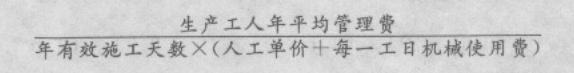 生产工人年平均管理费
年有效施工天数×(人工单价+每一工日机械使用费)